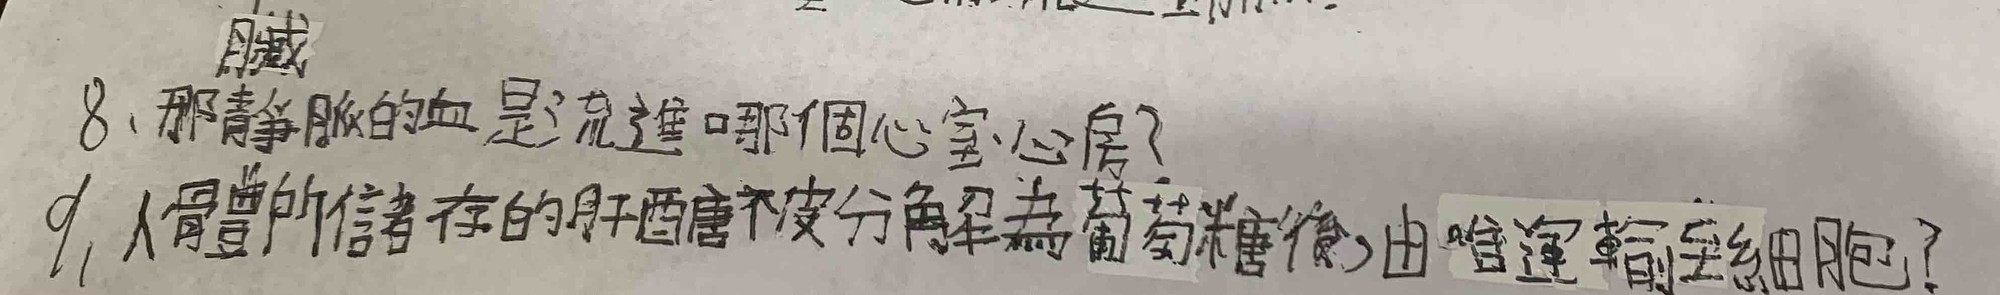 臟
8、那靜脈的血是流進哪個心室、心房?
9、人體所儲存的肝醣被分解為葡萄糖後,由誰運輸至細胞?